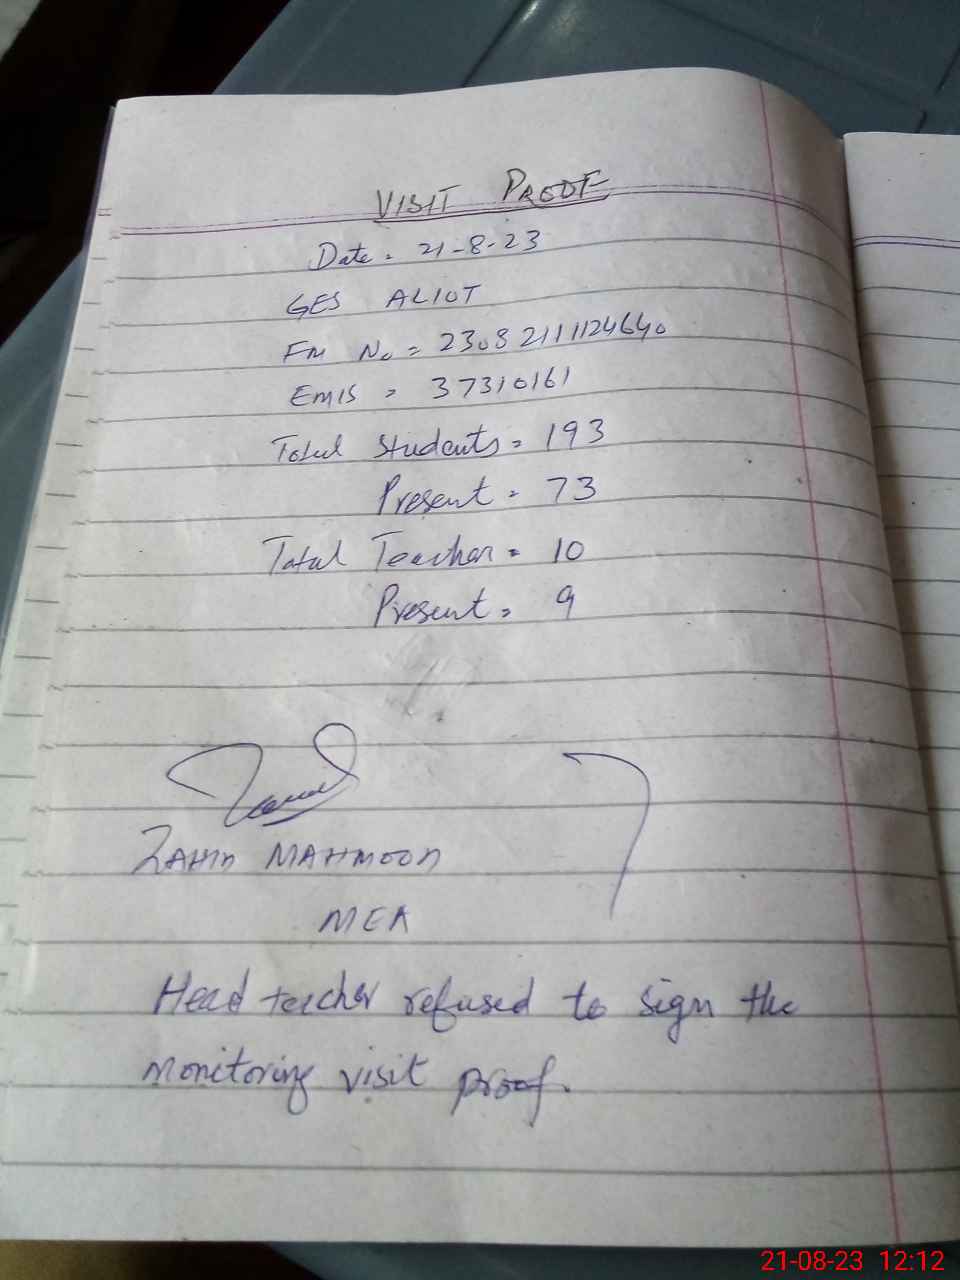 VISIT PROOF
Date = 21-8-23
GES ALIOT
FM No = 2308211124640
EMIS = 37310161
Total Students = 193
Present = 73
Total Teacher = 10
Present = 9
ZAHID MAHMOOD
MEA
Head teacher refused to sign the
monitoring visit proof.
21-08-23 12:12